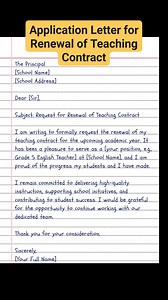 Application Letter for
Renewal of Teaching
Contract
The Principal
[School Name]
[School Address]
Dear [Sir],
Subject: Request for Renewal of Teaching Contract
I am writing to formally request the renewal of my
teaching contract for the upcoming academic year. It
has been a pleasure to serve as a [your position, e.g.,
Grade 5 English Teacher] at [School Name], and I am
proud of the progress my students and I have made.
I remain committed to delivering high-quality
instruction, supporting school initiatives, and
contributing to student success. I would be grateful
for the opportunity to continue working with our
dedicated team.
Thank you for your consideration.
Sincerely,
[Your Full Name]